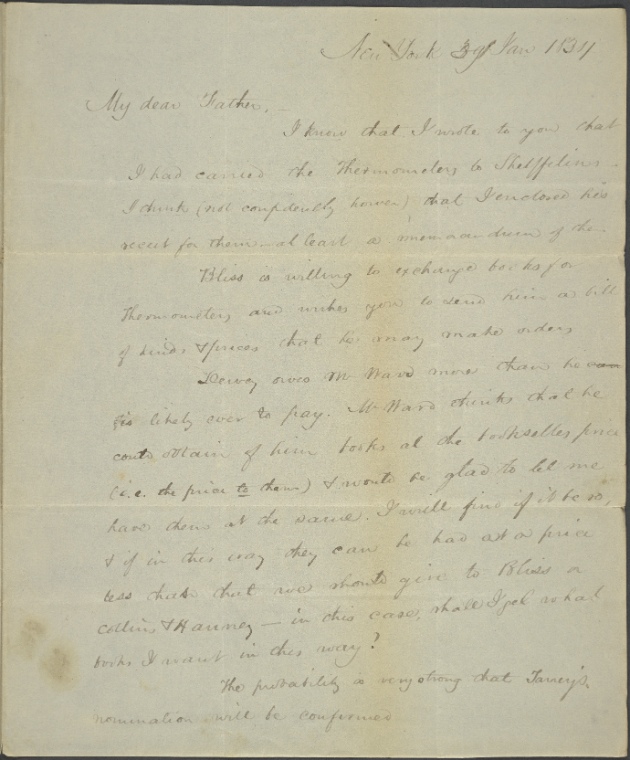 New York Jan 1834
My dear Father, -
I knew that I wrote to you that
I had carried the Thermometers to
I think (not confidently however) that I enclosed his
receit for them - at least a memorandum of the
Bliss is willing to exchange books for
Thermometers and wishes you to send him a bill
of kinds & prices that he may make orders
Dewey owes Mr Ward more than he
is likely ever to pay. Mr Ward thinks that he
could obtain of him books at the booksellers price
(i.e. the price to them) & would be glad to let me
have them at the same. I will find if it be so,
& if in this way they can be had at a price
less than that we should give to Bliss or
Collins & Hanney - in this case, shall I get what
books I want in this way?
The probability is very strong that Taney's
nomination will be confirmed